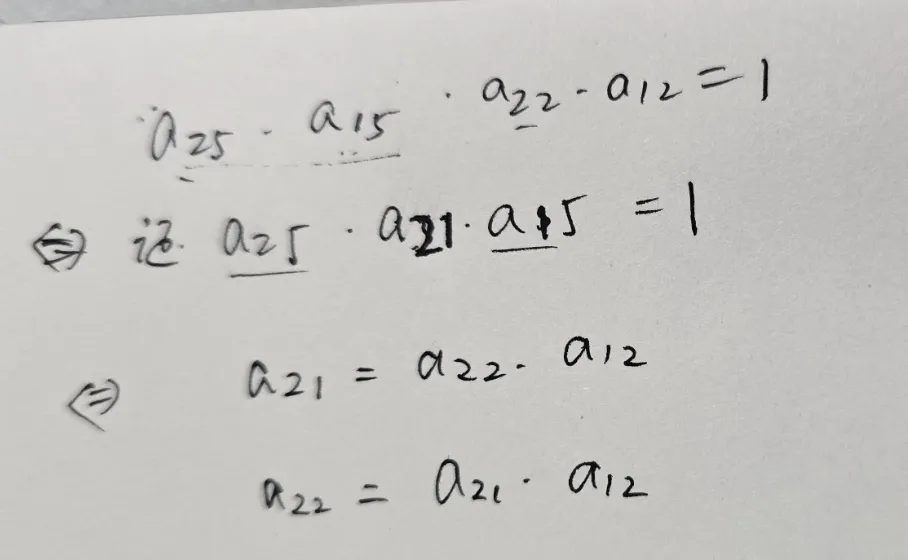 a₂₅ · a₁₅ · a₂₂ · a₁₂ = 1
⇔ 记 a₂₅ · a₂₁ · a₁₅ = 1
⇔ a₂₁ = a₂₂ · a₁₂
a₂₂ = a₂₁ · a₁₂